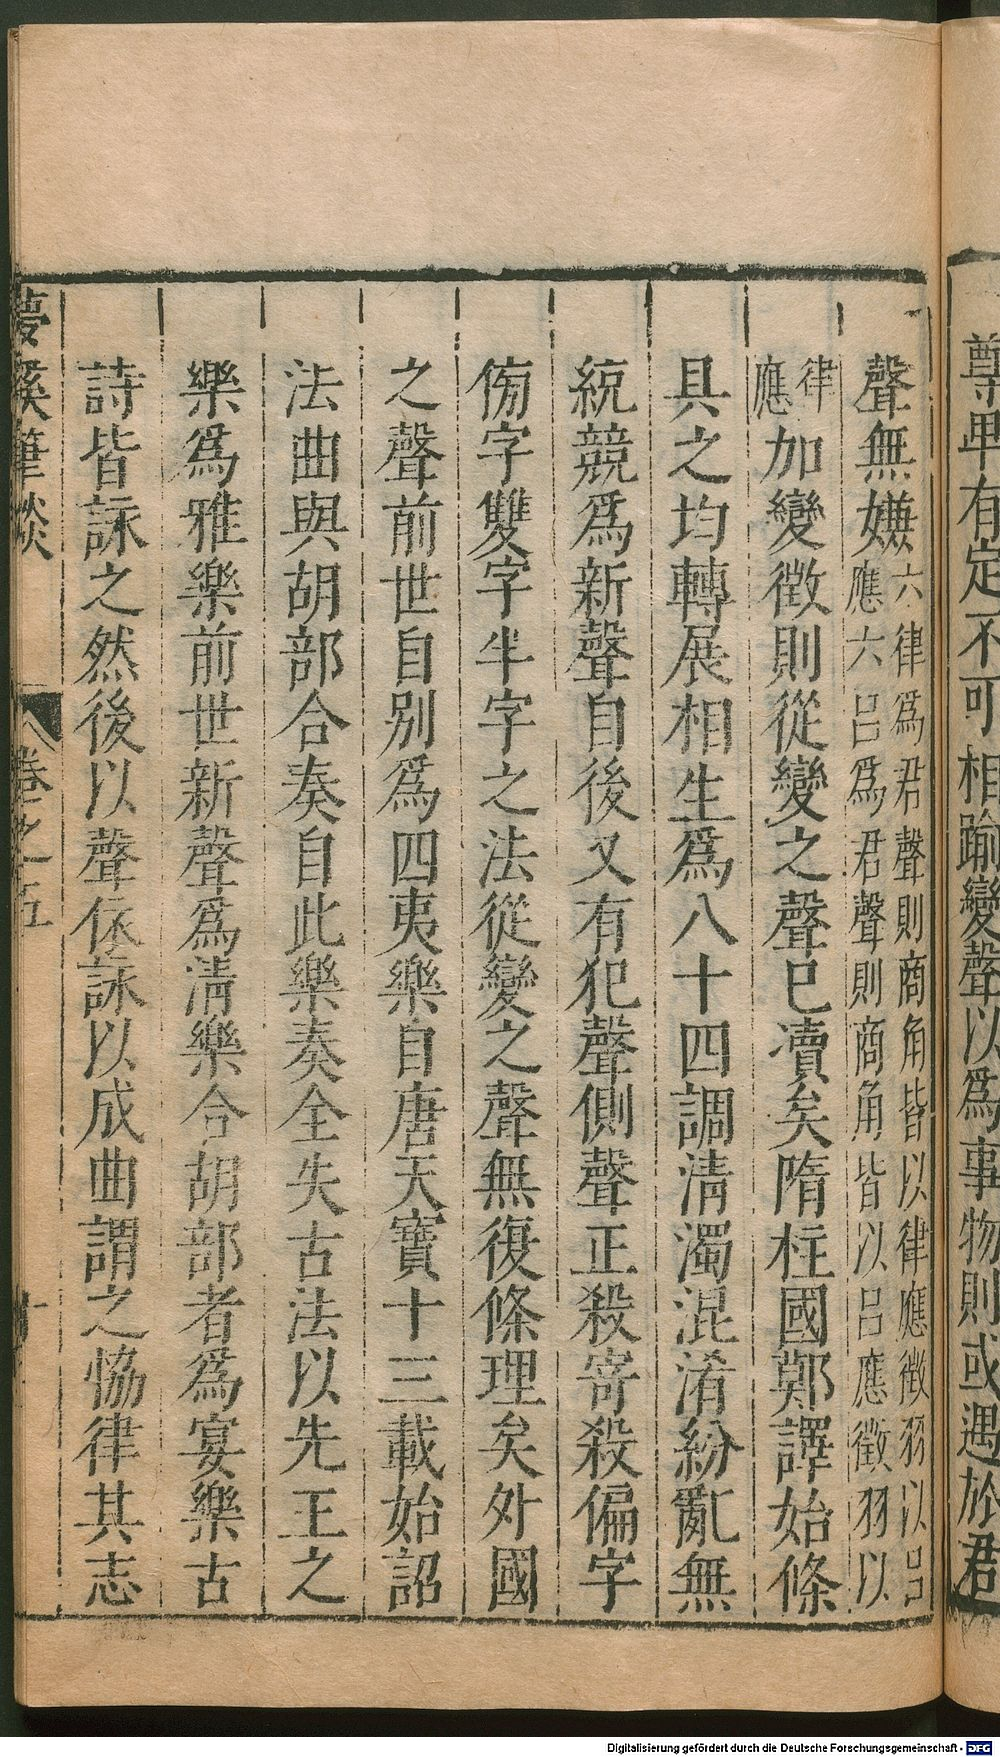 尊卑有定不可相踰變聲以爲事物則或遇於君
聲無嫌六律爲君聲則商角皆以律應徵羽以呂
應六呂爲君聲則商角皆以呂應徵羽以
律
應加變徵則從變之聲已凟矣隋柱國鄭譯始條
具之均轉展相生爲八十四調淸濁混淆紛亂無
統競爲新聲自後又有犯聲側聲正殺寄殺偏字
傍字雙字半字之法從變之聲無復條理矣外國
之聲前世自别爲四夷樂自唐天寶十三載始詔
法曲與胡部合奏自此樂奏全失古法以先王之
樂爲雅樂前世新聲爲淸樂合胡部者爲宴樂古
詩皆詠之然後以聲依詠以成曲謂之恊律其志
夢溪筆談 卷之五
Digitalisierung gefördert durch die Deutsche Forschungsgemeinschaft - DFG